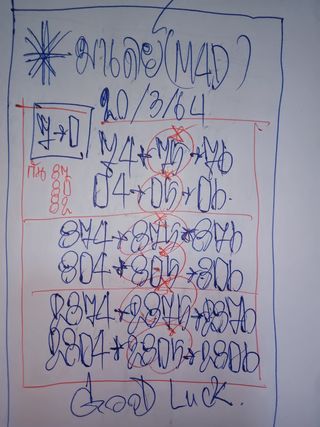 มาเลย์(M4D)
20/3/64
7→0
74*75*76
87
04*05*06
80
82
874*875*876
804*805*806
2874*2875*2876
2804*2805*2806
Good Luck.